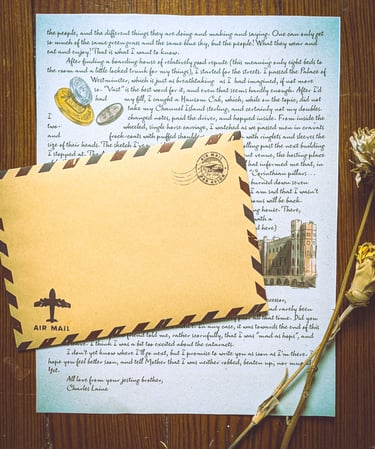 the people, and the different things they are doing and making and saying. One can only get
so much of the same green grass and the same blue sky, but the people! What they wear and
eat and enjoy! That is what I want to know.
After finding a boarding house of relatively good repute (this meaning only eight beds to
the room and a little locked trunk for my things), I started for the streets. I passed the Palace of
Westminster, which is just as breathtaking as I had imagined, if not more
so. "Vast" is the best word for it, and even that seems hardly enough. After I'd
had my fill, I caught a Hansom Cab, which, while on the topic, did not
take my Channel Island sterling, and certainly not my doubles.
I changed notes, paid the driver, and hopped inside. From inside the
two- wheeled, single horse carriage, I watched as we passed men in cravats
and frock-coats with puffed shoulders
with ringlets and sleeves the
size of their heads. The sketch I've
rolling past the next building
I stopped at. The
venue, the hosting place
had informed me that
"Corinthian pillars...
burned down seven
I am sad that I wasn't
will be back.
housing house. There,
with a
here)
AIR MAIL
AIR MAIL
and rarely been
all that time. Did you
In any case, it was towards the end of this
told me, rather scornfully, that I was "mad as hops", and
I think I was a bit too excited about the cataracts.
I don't know where I'll go next, but I promise to write you as soon as I'm there.
hope you feel better soon, and tell Mother that I was neither robbed, beaten up, nor
Yet.
All love from your jesting brother,
Charles Laine